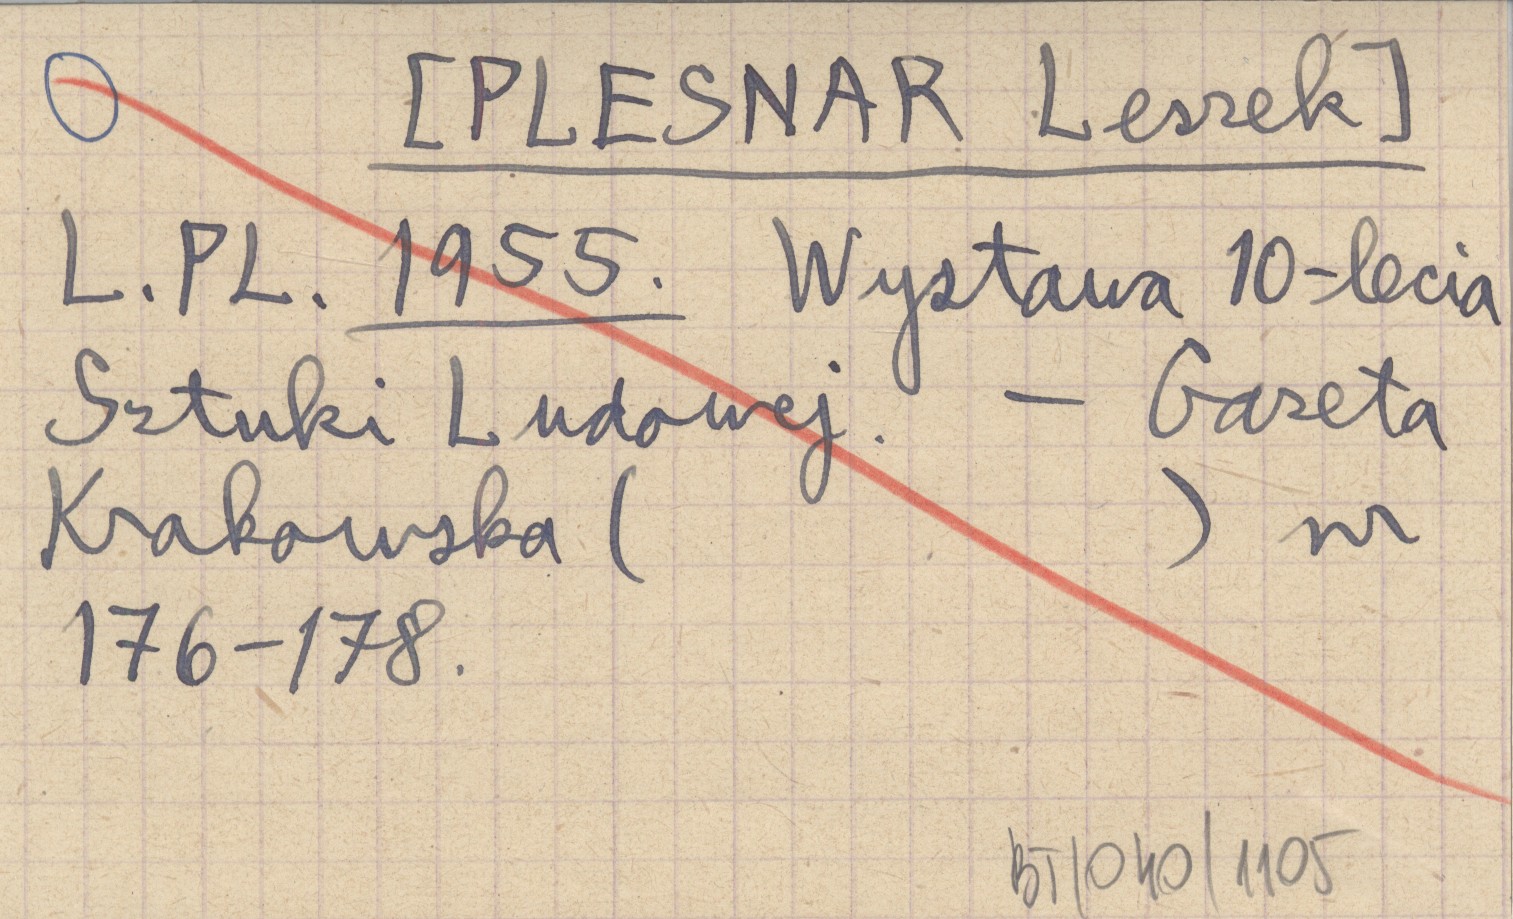 [PLESNAR Leszek]
L.PL. 1955. Wystawa 10-lecia
Sztuki Ludowej. — Gazeta
Krakowska ( ) nr
176-178.
BT/040/1105